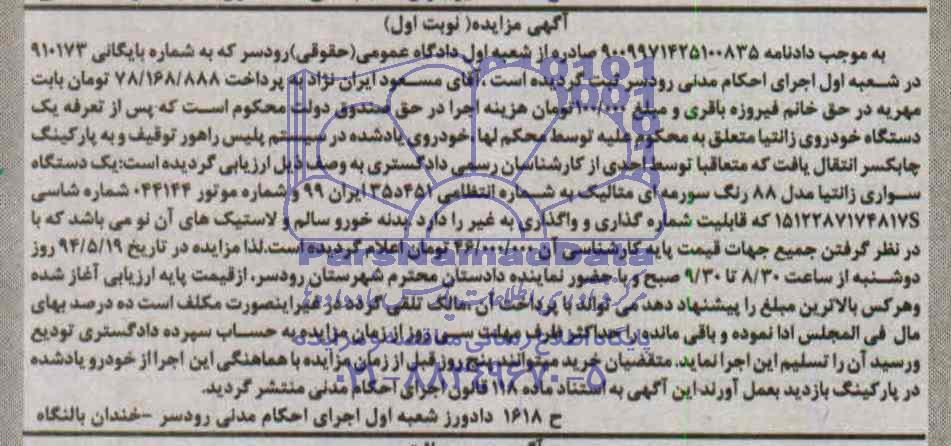 آگهی مزایده( نوبت اول)
به موجب دادنامه ۹۰۰۹۹۷۱۴۲۵۱۰۰۸۳۵ صادره از شعبه اول دادگاه عمومی(حقوقی)رودسر که به شماره بایگانی ۹۱۰۱۷۳
در شعبه اول اجرای احکام مدنی رودسر ثبت گردیده است ، آقای مسعود ایران نژاد به پرداخت ۷۸/۱۶۸/۸۸۸ تومان بابت
مهریه در حق خانم فیروزه باقری و مبلغ تومان هزینه اجرا در حق صندوق دولت محکوم است که پس از تعرفه یک
دستگاه خودروی زانتیا متعلق به محکوم علیه توسط محکم لها خودروی یادشده در سیستم پلیس راهور توقیف و به پارکینگ
چابکسر انتقال یافت که متعاقبا توسط احدی از کارشناسان رسمی دادگستری به وصف ذیل ارزیابی گردیده است:یک دستگاه
سواری زانتیا مدل ۸۸ رنگ سورمه ای متالیک به شماره انتظامی ۴۵۱د۳۵ ایران ۹۹ و شماره موتور ۰۴۴۱۴۴ شماره شاسی
S۱۵۱۲۲۸۷۱۷۴۸۱۷ که قابلیت شماره گذاری و واگذاری به غیر را دارد بدنه خورو سالم و لاستیک های آن نو می باشد که با
در نظر گرفتن جمیع جهات قیمت پایه کارشناسی آن ۴۶/۰۰۰/۰۰۰ تومان اعلام گردیده است.لذا مزایده در تاریخ ۹۴/۵/۱۹ روز
دوشنبه از ساعت ۸/۳۰ تا ۹/۳۰ صبح و با حضور نماینده دادستان محترم شهرستان رودسر، ازقیمت پایه ارزیابی آغاز شده
وهرکس بالاترین مبلغ را پیشنهاد دهد می تواند با پرداخت آن مالک تلقی گردد در غیر اینصورت مکلف است ده درصد بهای
مال فی المجلس ادا نموده و باقی مانده را حداکثر ظرف مهلت سی روز از زمان مزایده به حساب سپرده دادگستری تودیع
ورسید آن را تسلیم این اجرا نماید. متقضیان خرید می توانند پنج روز قبل از زمان مزایده با هماهنگی این اجرا از خودرو یادشده
در پارکینگ بازدید بعمل آورند این آگهی به استناد ماده ۱۱۸ قانون اجرای احکام مدنی منتشر گردید.
ح ۱۶۱۸ دادورز شعبه اول اجرای احکام مدنی رودسر -خندان بالنگاه
ParsNamadData
پایگاه اطلاع رسانی مناقصه و مزایده
۰۲۱-۸۸۳۴۹۶۷۰-۵